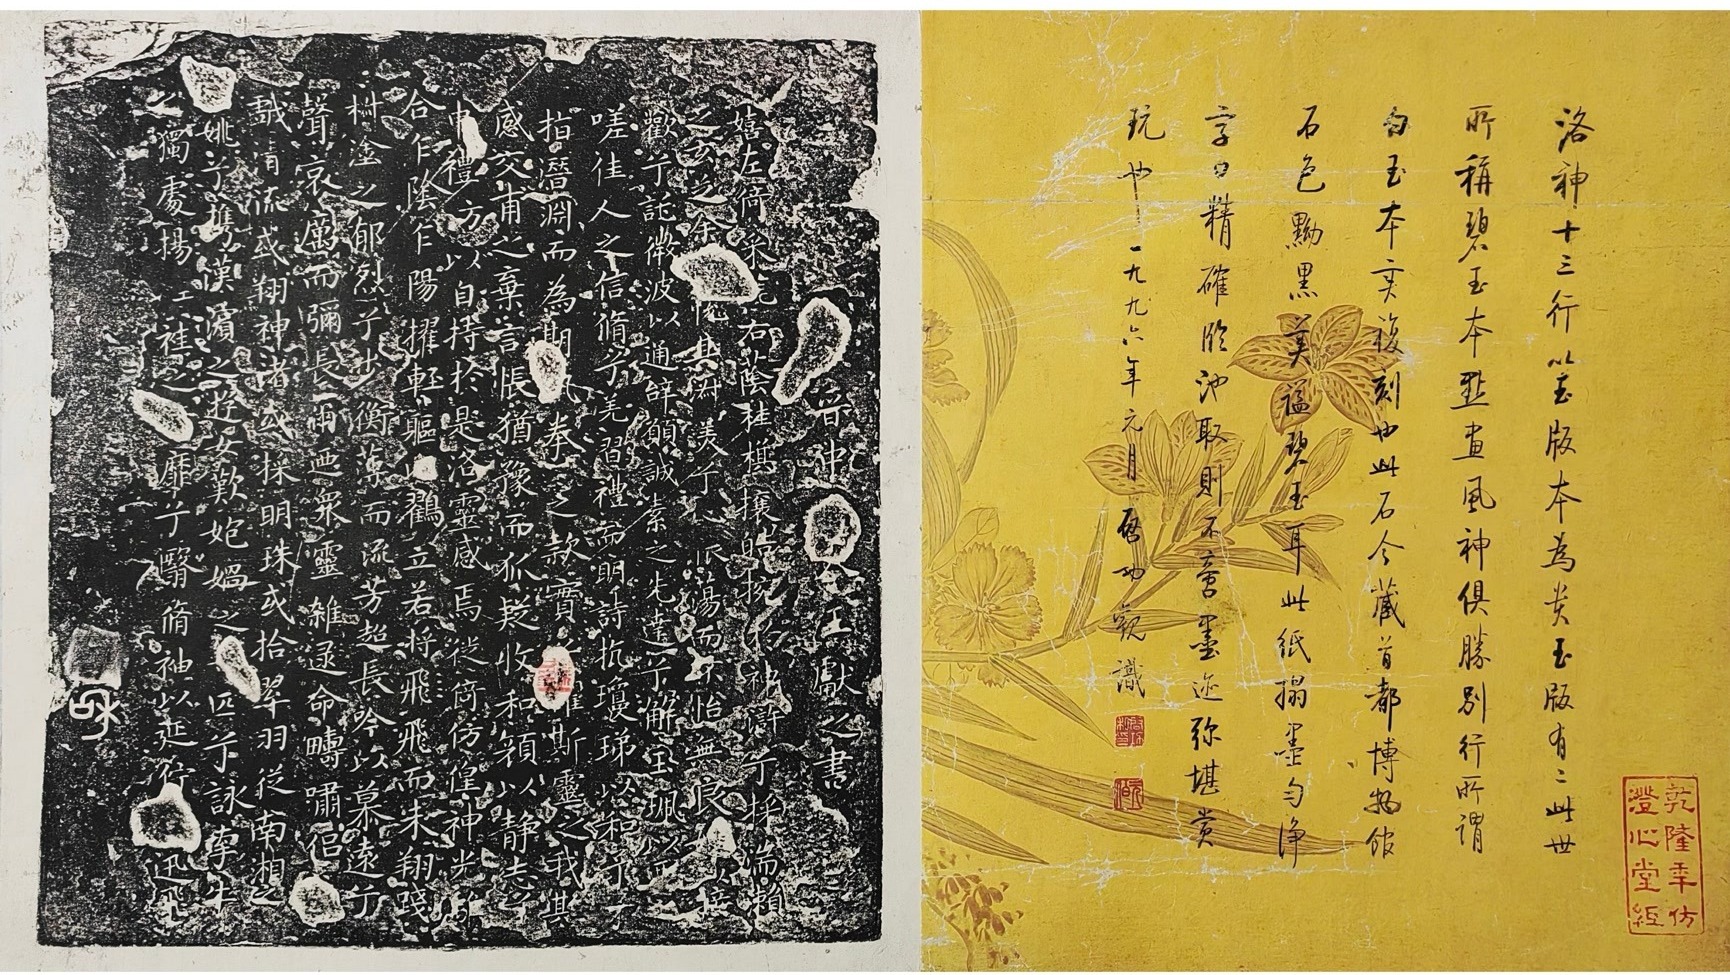 洛神十三行以玉版本為貴玉版有二此世
所稱碧玉本點畫風神俱勝別行所謂
白玉本實複刻也此石今藏首都博物館
石色黝黑美謚碧玉耳此紙搨墨勻淨
字口精確臨池取則不啻墨迹弥堪賞
玩也一九九六年元月啓功觀識
乾隆年仿
澄心堂紙
晉中令王獻之書
嬉左倚采旄右蔭桂旗攘皓捥於神滸兮採湍瀨
之玄芝余悅其淑美兮心振蕩而不怡無良媒以接
歡兮託微波以通辭願誠素之先達兮解玉珮而要之
嗟佳人之信脩兮羌習禮而明詩抗瓊珶以和予兮
指潛淵而為期執拳之款實兮懼斯靈之我欺
感交甫之棄言悵猶豫而狐疑收和顏以靜志兮
申禮方以自持於是洛靈感焉徙倚仿偟神光離
合乍陰乍陽擢輕軀以鶴立若將飛飛而未翔踐
椒塗之郁烈兮步衡薄而流芳超長吟以慕遠兮
聲哀厲而彌長爾迺眾靈雜遝命疇嘯侶
戲清流或翔神渚或採明珠或拾翠羽從南湘之
姚兮攜漢濱之遊女歎匏媧之無匹兮詠牽牛
之獨處揚輕袿之靡兮翳脩袖以延佇迅飛